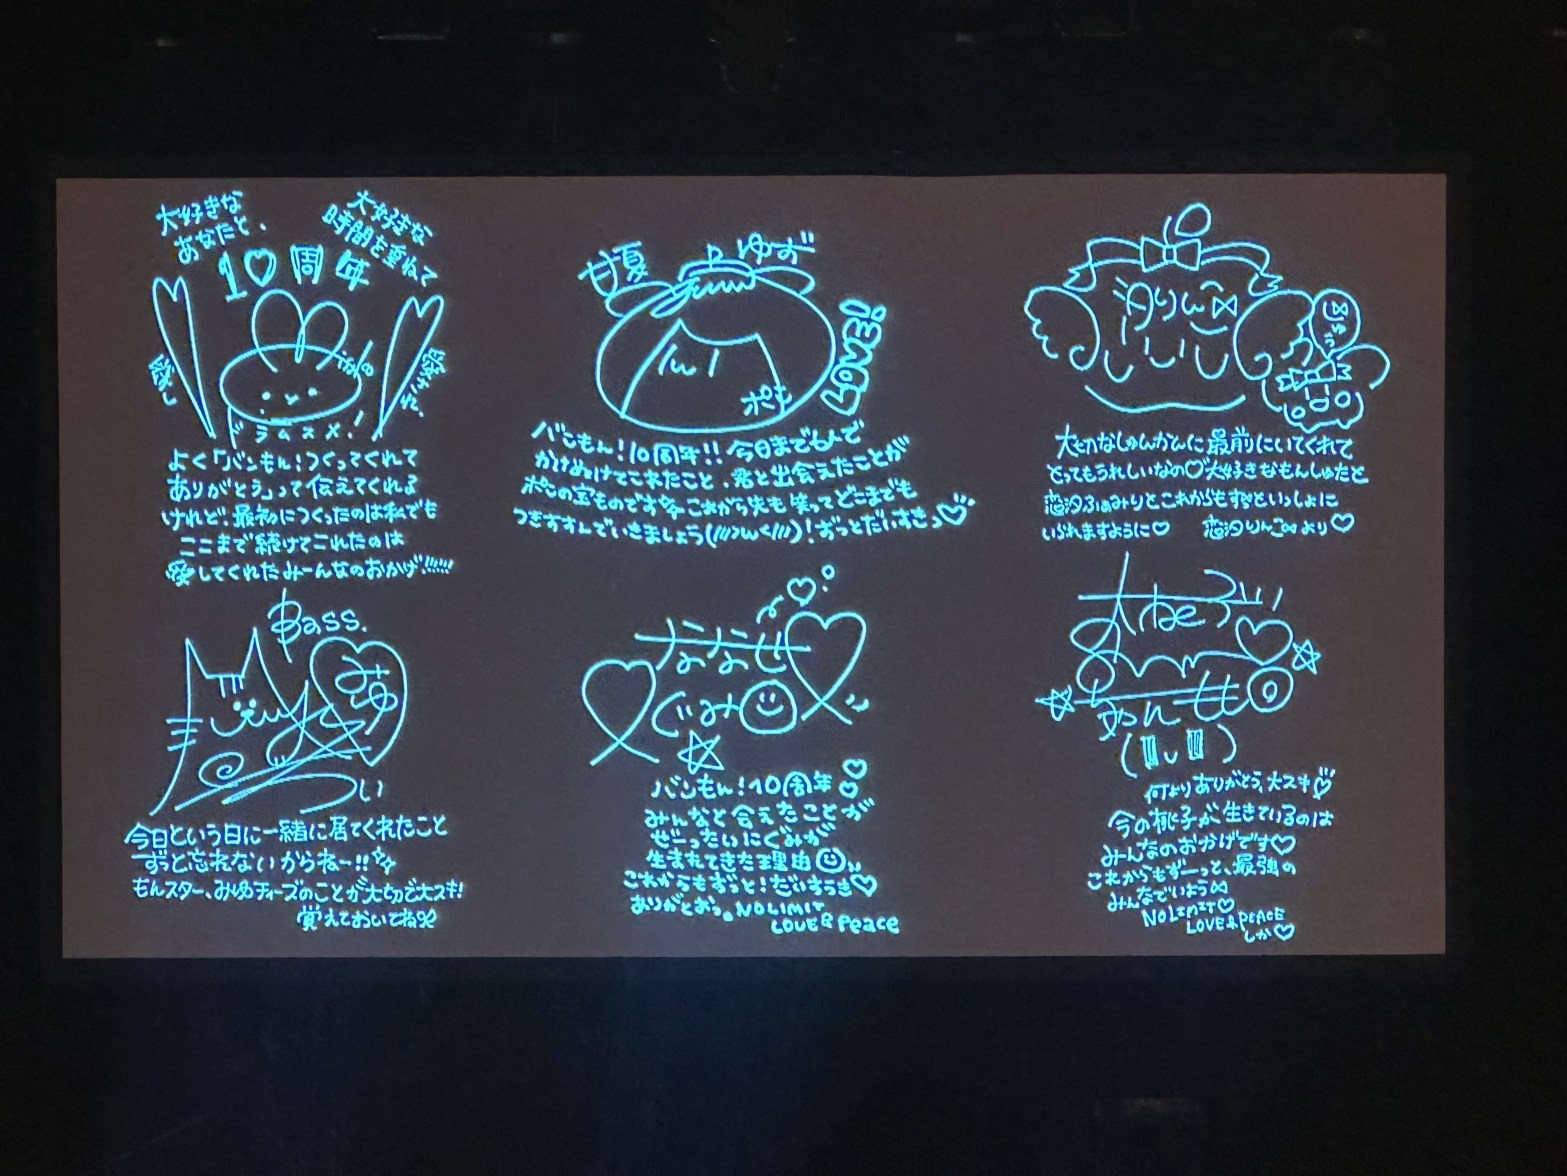 大好きな
あなたと、
大好きな
時間を重ねて
10周年
愛し
愛され、
ドラムスメ!
よく「バンもん!つくってくれて
ありがとう」って伝えてくれる
けれど、最初につくったのは私でも
ここまで続けてこれたのは
愛してくれたみーんなのおかげ!!!!!
甘夏 ゆず
LOVE!
ポむ
バンもん!10周年!!今日までもんで
かけぬけてこれたこと、君と出会えたことが
ポむの宝ものです これから先も笑ってどこまでも
つきすすんでいきましょう(///>ω<///)!ずっとだいすきっ♡
汐りん
大切なしゅんかんに最前にいてくれて
とってもうれしいなの♡大好きなもんしゅたと
恋汐ふぁみりとこれからもずっといっしょに
いられますように♡ 恋汐りんごより♡
Bass.
みゆ
今日という日に一緒に居てくれたこと
ずっと忘れないからねー!!
もんスター、みゆチィーズのことが大切で大スキ!
覚えておいてね
ななせ
ぐみ
バンもん!10周年♡
みんなと会えたことが
ぜーったいにぐみが
生まれてきた理由
これからもずっと!だいすうき♡
ありがとおっ。NO LIMIT
LOVE & Peace
(▮v▮)
何よりありがとう、大スキ♡
今の桃子が生きているのは
みんなのおかげです♡
これからもずーっと、最強の
みんなでいよう
NO LIMIT♡
LOVE & PEACE
しか♡